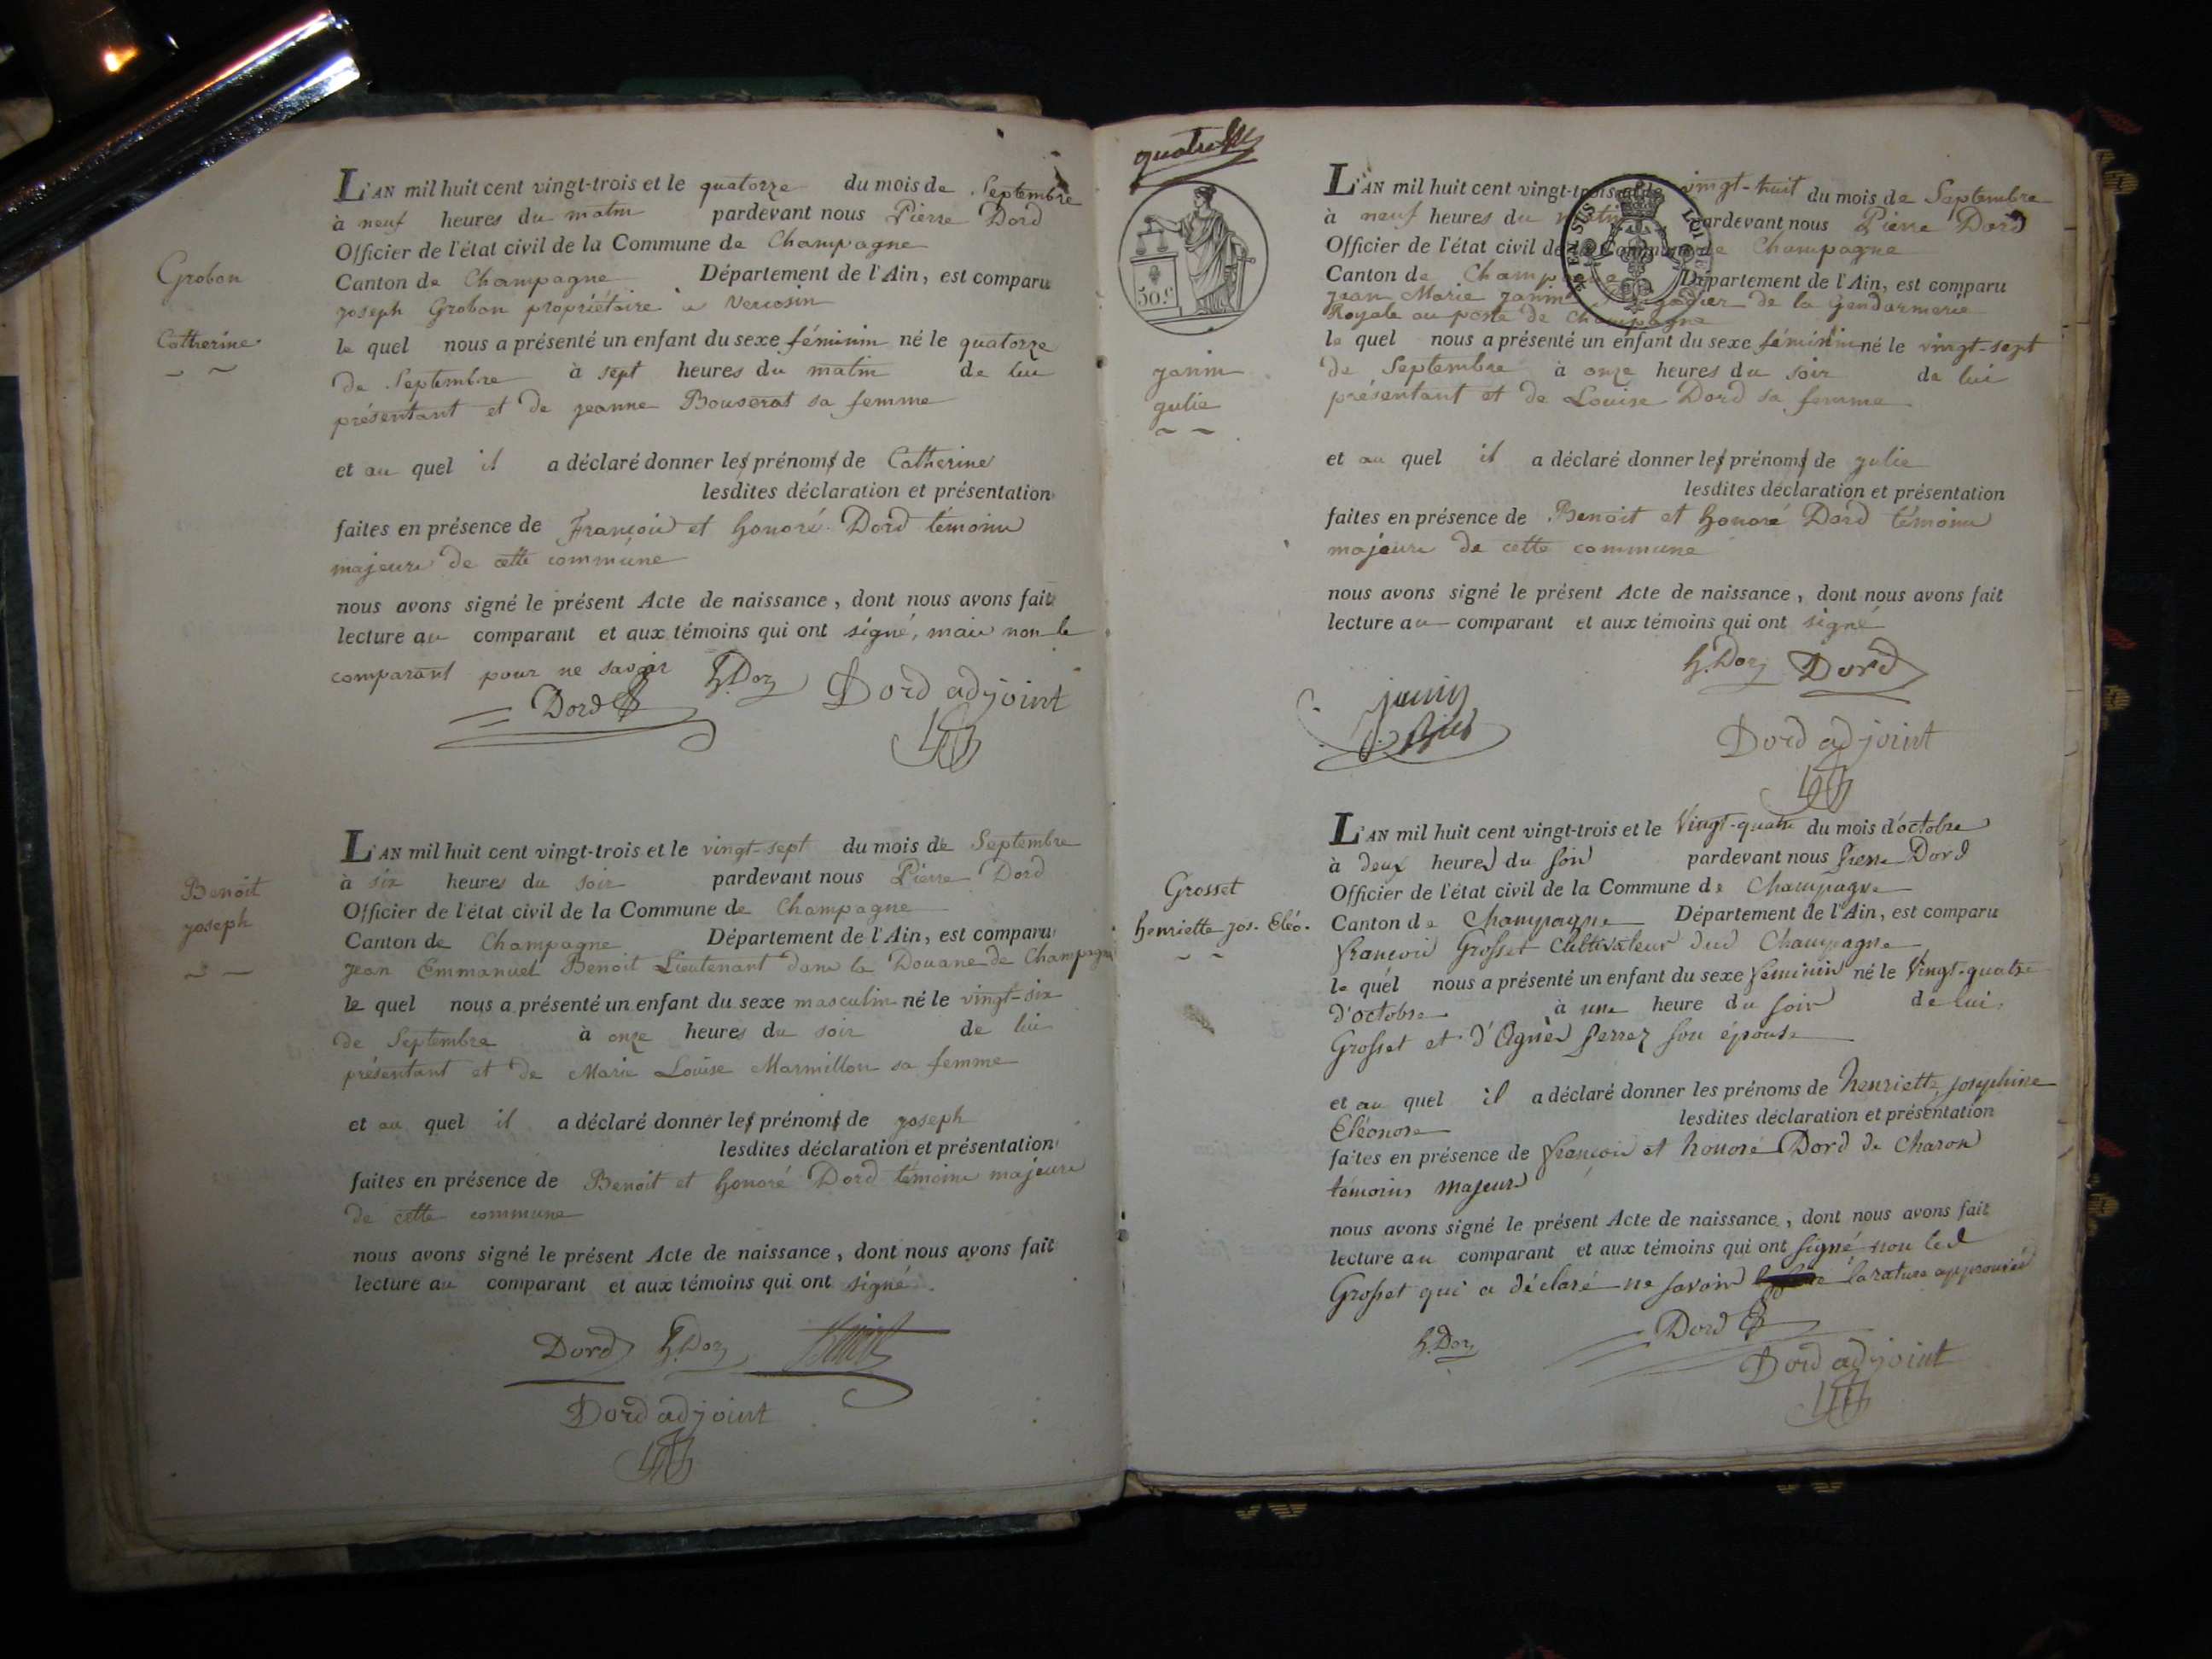 Grobon
Catherine
L'AN mil huit cent vingt-trois et le quatorze du mois de Septembre
à neuf heures du matin pardevant nous Pierre Dord
Officier de l'état civil de la Commune de Champagne
Canton de Champagne Département de l'Ain, est comparu
joseph Grobon propriétaire à Vercosin
le quel nous a présenté un enfant du sexe féminin né le quatorze
de Septembre à sept heures du matin de lui
présentant et de jeanne Bouverat sa femme
et au quel il a déclaré donner les prénoms de Catherine
lesdites déclaration et présentation
faites en présence de François et honoré Dord témoins
majeurs de cette commune
nous avons signé le présent Acte de naissance, dont nous avons fait
lecture au comparant et aux témoins qui ont signé, mais non le
comparant pour ne savoir h. Dord Dord adjoint
Dord
Benoit
joseph
L'AN mil huit cent vingt-trois et le vingt-sept du mois de Septembre
à six heures du soir pardevant nous Pierre Dord
Officier de l'état civil de la Commune de Champagne
Canton de Champagne Département de l'Ain, est comparu
jean Emmanuel Benoit Lieutenant dans la Douane de Champagne
le quel nous a présenté un enfant du sexe masculin né le vingt-six
de Septembre à onze heures du soir de lui
présentant et de Marie Louise Marmillon sa femme
et au quel il a déclaré donner les prénoms de joseph
lesdites déclaration et présentation
faites en présence de Benoit et honoré Dord témoins majeurs
de cette commune
nous avons signé le présent Acte de naissance, dont nous avons fait
lecture au comparant et aux témoins qui ont signé.
Dord h. Dord
Dord adjoint
quatre
50 c
janin
julie
L'AN mil huit cent vingt-trois et le vingt-huit du mois de Septembre
à neuf heures du matin pardevant nous Pierre Dord
Officier de l'état civil de la Commune de Champagne
Canton de Champagne Département de l'Ain, est comparu
jean Marie janin de la gendarmerie
Royale au poste de Champagne
le quel nous a présenté un enfant du sexe féminin né le vingt-sept
de Septembre à onze heures du soir de lui
présentant et de Louise Dord sa femme
et au quel il a déclaré donner les prénoms de julie
lesdites déclaration et présentation
faites en présence de Benoit et honoré Dord témoins
majeurs de cette commune
nous avons signé le présent Acte de naissance, dont nous avons fait
lecture au comparant et aux témoins qui ont signé
h. Dord Dord
janin
Dord adjoint
Grosset
henriette jos. Eléo.
L'AN mil huit cent vingt-trois et le Vingt-quatre du mois d'octobre
à deux heures du soir pardevant nous Pierre Dord
Officier de l'état civil de la Commune de Champagne
Canton de Champagne Département de l'Ain, est comparu
françois Grosset Cultivateur dud Champagne
le quel nous a présenté un enfant du sexe féminin né le Vingt-quatre
d'octobre à une heure du soir de lui
Grosset et d'Agnès perrez son épouse
et au quel il a déclaré donner les prénoms de henriette josephine
Eléonore lesdites déclaration et présentation
faites en présence de françois et honoré Dord de Charon
témoins majeurs
nous avons signé le présent Acte de naissance, dont nous avons fait
lecture au comparant et aux témoins qui ont signé non led
Grosset qui a déclaré ne savoir la rature approuvée
h. Dord Dord
Dord adjoint